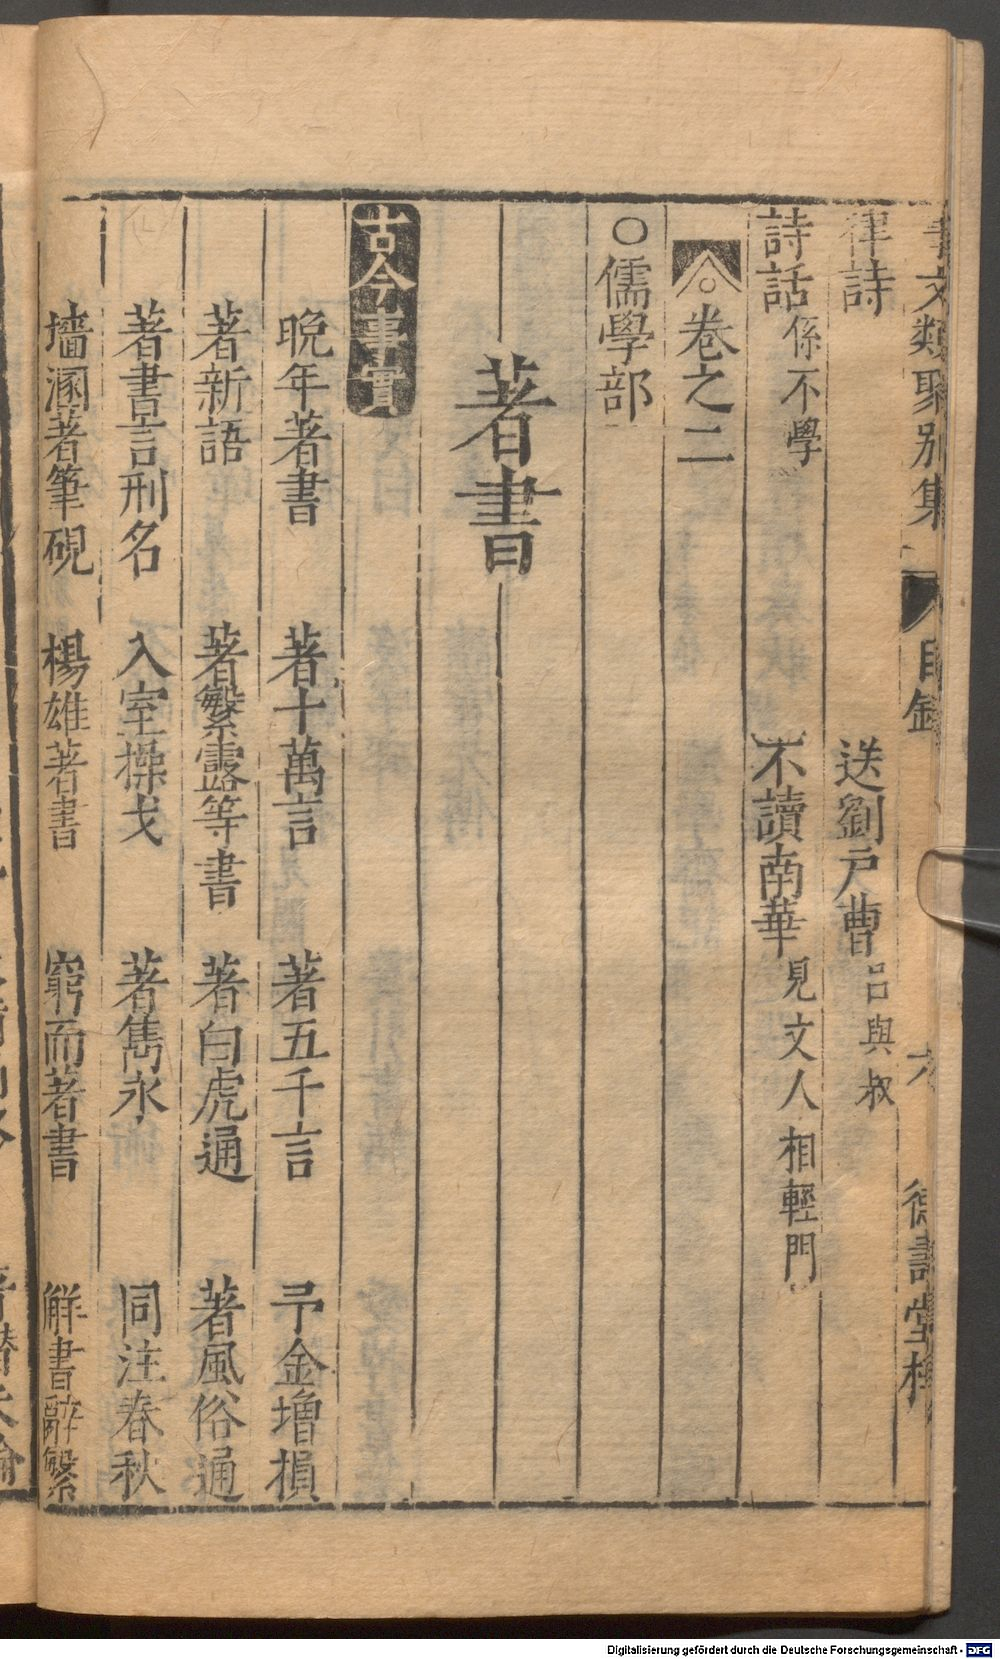 事文類聚別集 目録 六 德壽堂梓
律詩 送劉戶曹 呂與叔
詩話 係不學 不讀南華 見文人相輕門
卷之二
○儒學部
著書
古今事實
晩年著書 著十萬言 著五千言 予金增損
著新語 著繁露等書 著白虎通 著風俗通
著書言刑名 入室操戈 著雋永 同注春秋
墻溷著筆硯 楊雄著書 窮而著書 觧書辭繁
Digitalisierung gefördert durch die Deutsche Forschungsgemeinschaft - DFG